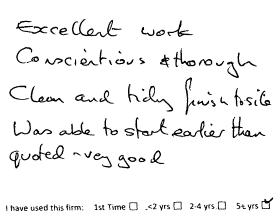 Excellent work
Conscientious & thorough
Clean and tidy finish to site
Was able to start earlier than
quoted - very good
I have used this firm: 1st Time ☐ <2 yrs ☐ 2-4 yrs ☐ 5+ yrs ☑